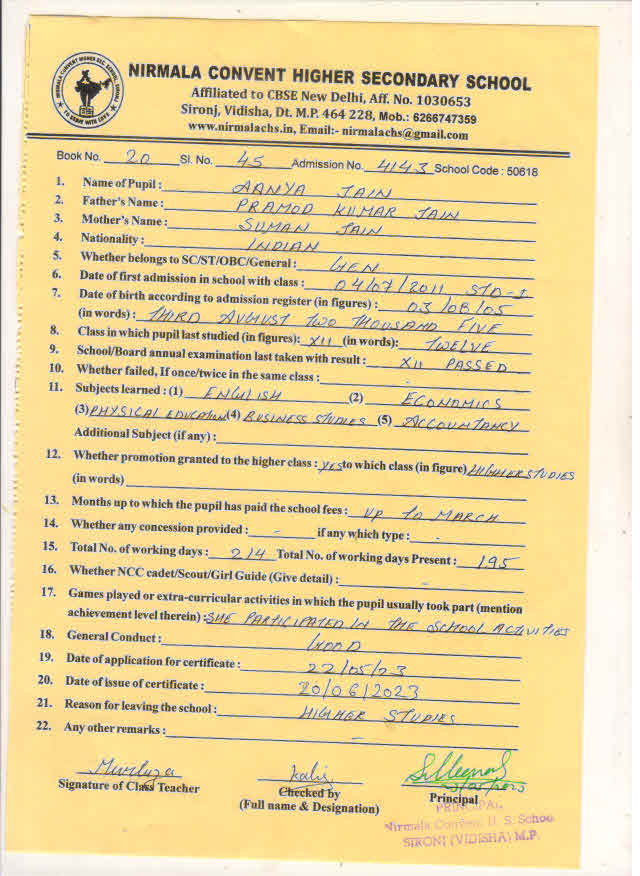 NIRMALA CONVENT HIGHER SEC. SCHOOL, SIRONJ
TO SERVE WITH LOVE
NIRMALA CONVENT HIGHER SECONDARY SCHOOL
Affiliated to CBSE New Delhi, Aff. No. 1030653
Sironj, Vidisha, Dt. M.P. 464 228, Mob.: 6266747359
www.nirmalachs.in, Email:- nirmalachs@gmail.com
Book No. 20 Sl. No. 45 Admission No. 4143 School Code : 50618
1. Name of Pupil : AANYA JAIN
2. Father's Name : PRAMOD KUMAR JAIN
3. Mother's Name : SUMAN JAIN
4. Nationality : INDIAN
5. Whether belongs to SC/ST/OBC/General : GEN
6. Date of first admission in school with class : 04/07/2011 STD-I
7. Date of birth according to admission register (in figures) : 03/08/05
(in words) : THIRD AUGUST TWO THOUSAND FIVE
8. Class in which pupil last studied (in figures): XII (in words): TWELVE
9. School/Board annual examination last taken with result : XII PASSED
10. Whether failed, If once/twice in the same class : -
11. Subjects learned : (1) ENGLISH (2) ECONOMICS
(3) PHYSICAL EDUCATION (4) BUSINESS STUDIES (5) ACCOUNTANCY
Additional Subject (if any) :
12. Whether promotion granted to the higher class : YES to which class (in figure) HIGHER STUDIES
(in words)
13. Months up to which the pupil has paid the school fees : UP TO MARCH
14. Whether any concession provided : - if any which type : -
15. Total No. of working days : 214 Total No. of working days Present : 195
16. Whether NCC cadet/Scout/Girl Guide (Give detail) : -
17. Games played or extra-curricular activities in which the pupil usually took part (mention
achievement level therein) : SHE PARTICIPATED IN THE SCHOOL ACTIVITIES
18. General Conduct : GOOD
19. Date of application for certificate : 22/05/23
20. Date of issue of certificate : 20/06/2023
21. Reason for leaving the school : HIGHER STUDIES
22. Any other remarks : -
Signature of Class Teacher
Checked by
(Full name & Designation)
Principal
PRINCIPAL
Nirmala Convent H. S. School
SIRONJ (VIDISHA) M.P.